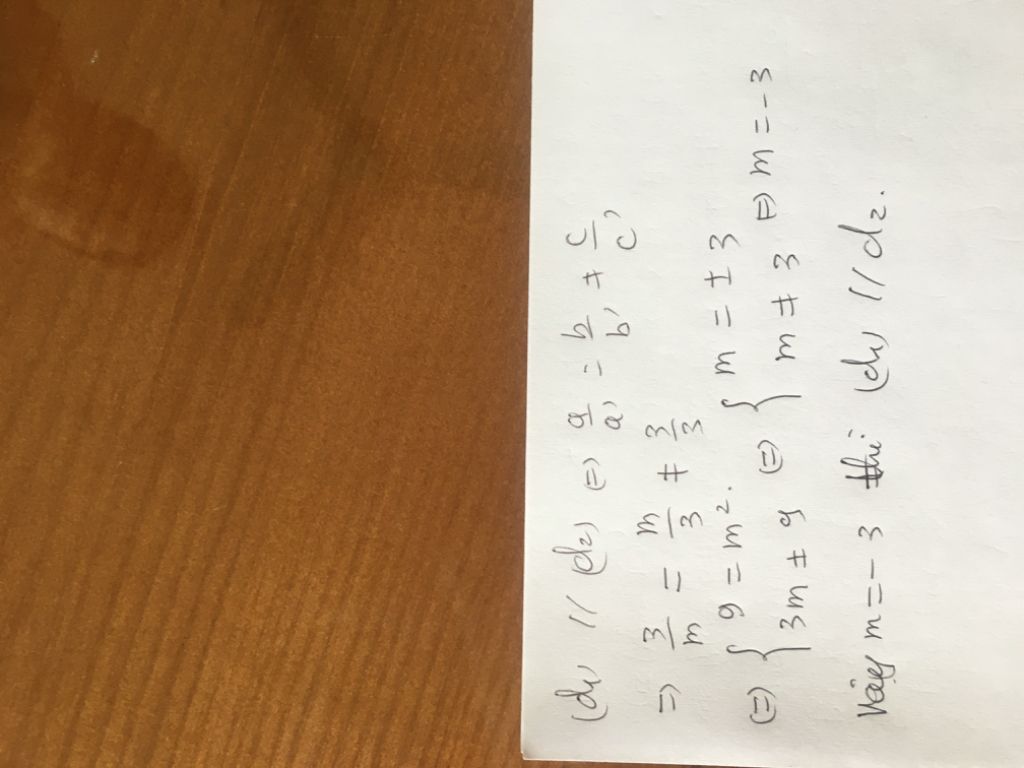 (d₁) // (d₂) ⇔ a/a' = b/b' ≠ c/c'
⇒ 3/m = m/3 ≠ 3/3
⇔ { 9 = m². 3m ≠ 9 ⇔ { m = ±3 m ≠ 3 ⇒ m = -3
Vậy m = -3 thì (d₁) // d₂.